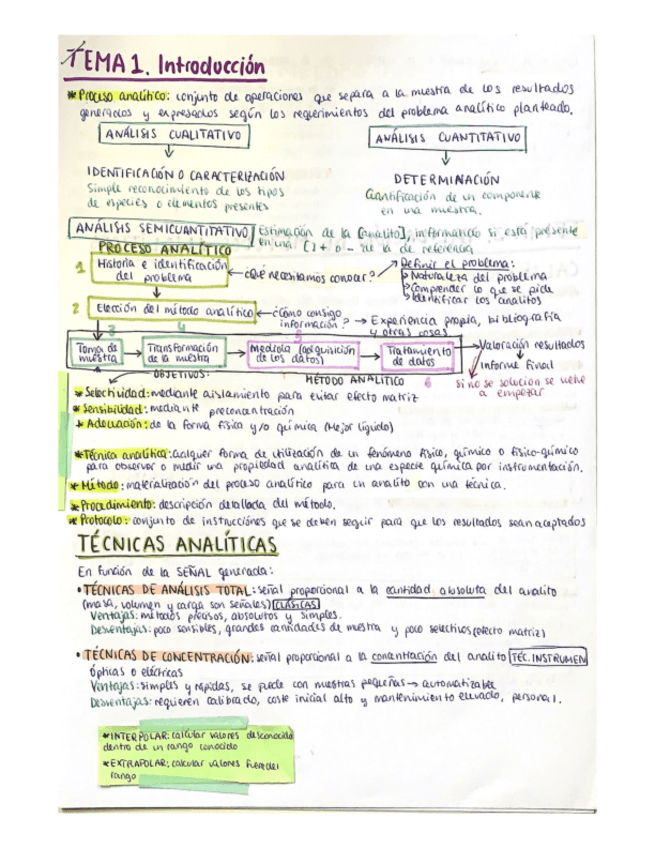 TEMA 1. Introducción
* Proceso analítico: conjunto de operaciones que separa a la muestra de los resultados
generados y expresados según los requerimientos del problema analítico planteado.
ANÁLISIS CUALITATIVO
ANÁLISIS CUANTITATIVO
IDENTIFICACIÓN O CARACTERIZACIÓN
Simple reconocimiento de los tipos
de especies o elementos presentes
DETERMINACIÓN
Cuantificación de un componente
en una muestra.
ANÁLISIS SEMICUANTITATIVO
Estimación de la [analito], informando si está presente
en una [ ] + o - que la de referencia
PROCESO ANALÍTICO
1 Historia e identificación
del problema
¿Qué necesitamos conocer?
Definir el problema:
Naturaleza del problema
Comprender lo que se pide
Identificar los analitos
2 Elección del método analítico
¿Cómo consigo
información? → Experiencia propia, bibliografía
y otras cosas
3 4 5
Toma de
muestra
Transformación
de la muestra
Medida (adquisición
de los datos)
Tratamiento
de datos
Valoración resultados
Informe final
OBJETIVOS:
MÉTODO ANALÍTICO 6
Si no se solucion se vuelve
a empezar
* Selectividad: mediante aislamiento para evitar efecto matriz
* Sensibilidad: mediante preconcentración
* Adecuación: de la forma física y/o química (Mejor líquido)
* Técnica analítica: Cualquier forma de utilización de un fenómeno físico, químico o físico-químico
para observar o medir una propiedad analítica de una especie química por instrumentación.
* Método: materialización del proceso analítico para un analito con una técnica.
* Procedimiento: descripción detallada del método.
* Protocolo: conjunto de instrucciones que se deben seguir para que los resultados sean aceptados
TÉCNICAS ANALÍTICAS
En función de la SEÑAL generada:
• TÉCNICAS DE ANÁLISIS TOTAL: señal proporcional a la cantidad absoluta del analito
(masa, volumen y carga son señales) CLÁSICAS
Ventajas: métodos precisos, absolutos y simples.
Desventajas: poco sensibles, grandes cantidades de muestra y poco selectivos (efecto matriz)
• TÉCNICAS DE CONCENTRACIÓN: señal proporcional a la concentración del analito TÉC. INSTRUMEN
ópticas o eléctricas
Ventajas: simples y rápidas, se puede con muestras pequeñas → automatizable
Desventajas: requieren calibrado, coste inicial alto y mantenimiento elevado, personal.
* INTERPOLAR: calcular valores desconocido
dentro de un rango conocido
* EXTRAPOLAR: calcular valores fuera del
rango